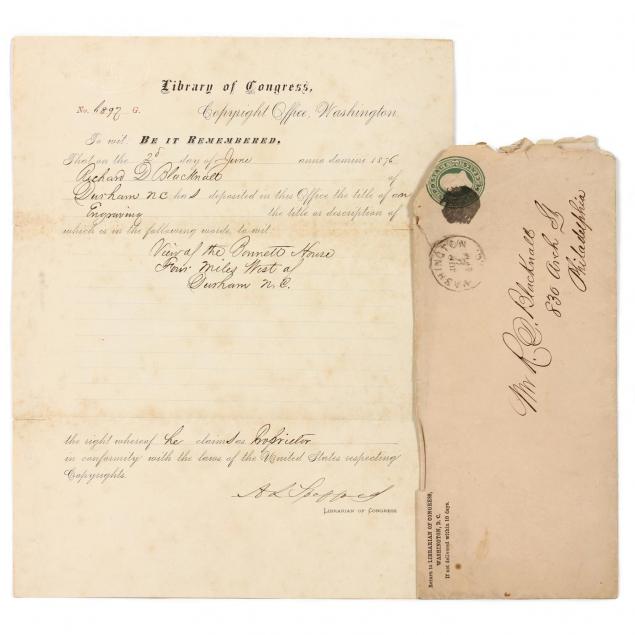 Library of Congress,
No. 6897 G. Copyright Office, Washington.
To wit: BE IT REMEMBERED,
That on the 2d day of June anno domini 1876
Richard D Blacknall of
Durham N.C. has deposited in this Office the title of an
Engraving the title or description of
which is in the following words, to wit:
View of the Bennett House
Four Miles West of
Durham N. C.
the right whereof he claims as Proprietor
in conformity with the laws of the United States respecting
Copyrights.
A R Spofford
LIBRARIAN OF CONGRESS
WASHINGTON
Mr R. D. Blacknall
830 Arch St
Philadelphia
Return to LIBRARIAN OF CONGRESS,
WASHINGTON, D. C.
If not delivered within 10 days.